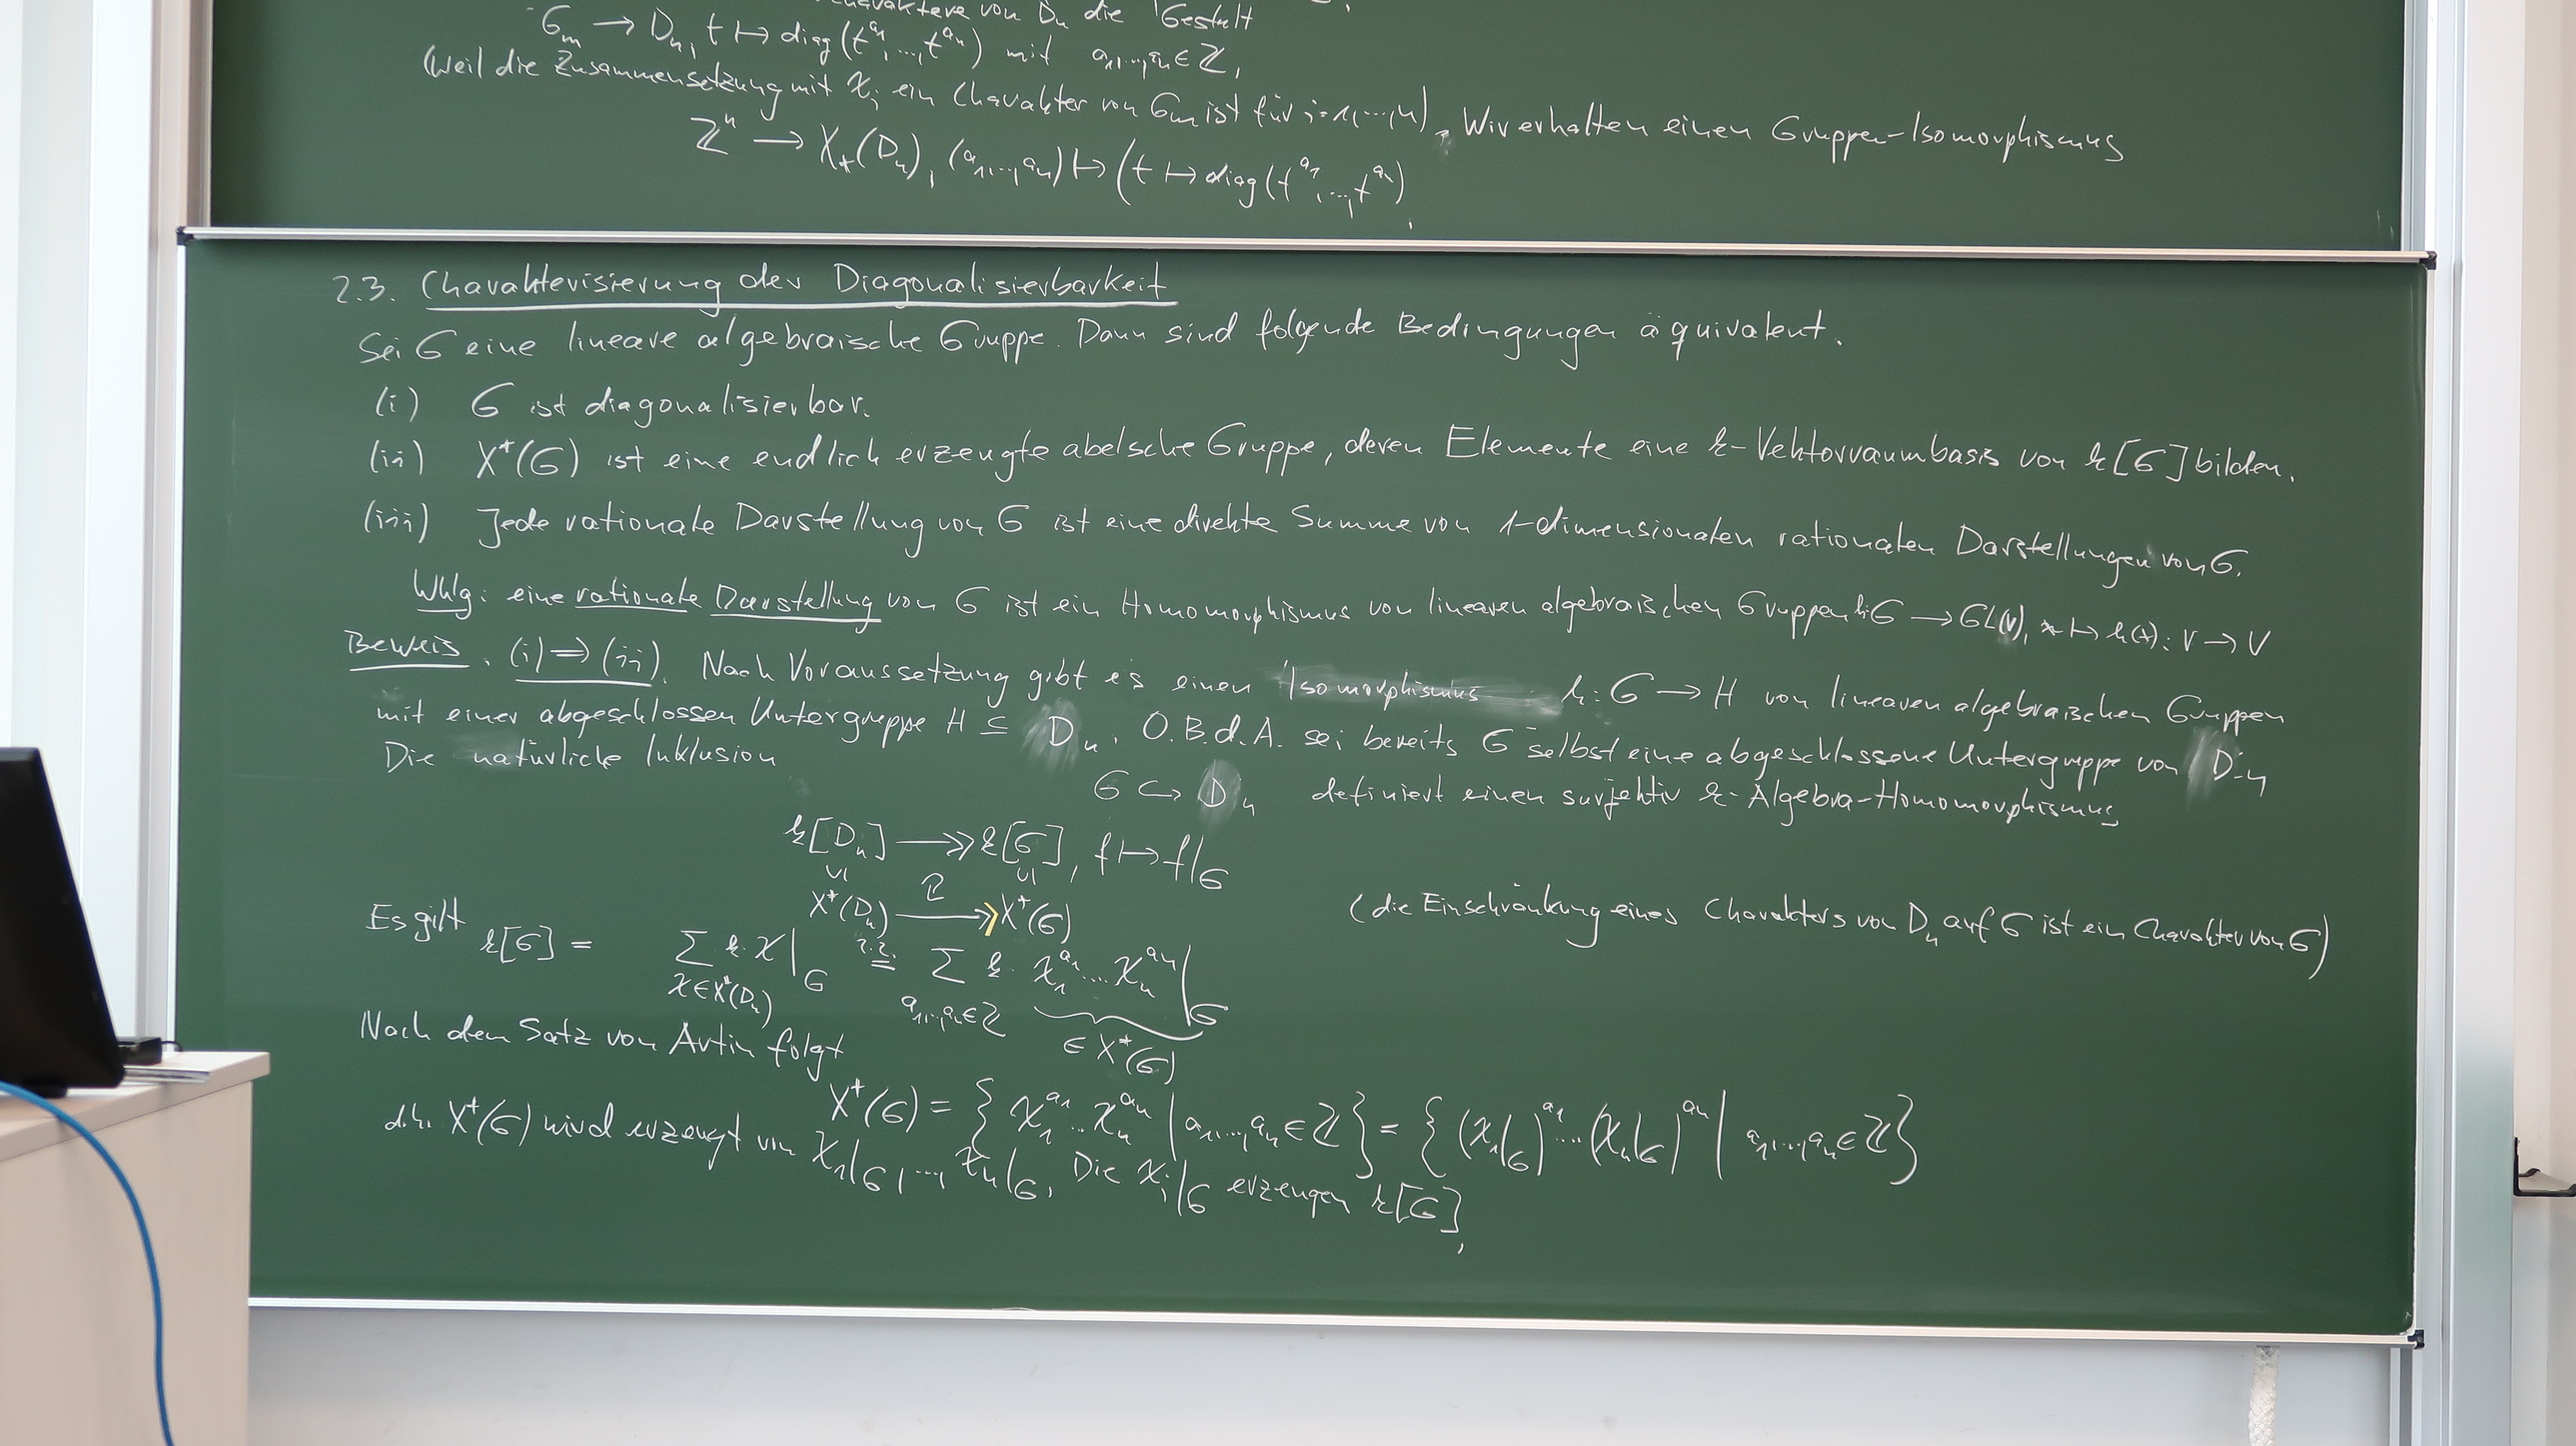 Charaktere von Dₙ die Gestalt
Gₘ → Dₙ, t ↦ diag(t^{a₁},...,t^{aₙ}) mit a₁,...,aₙ ∈ ℤ,
(weil die Zusammensetzung mit χᵢ ein Charakter von Gₘ ist für i=1,...,n). Wir erhalten einen Gruppen-Isomorphismus
ℤⁿ → X₊(Dₙ), (a₁,...,aₙ) ↦ (t ↦ diag(t^{a₁},...,t^{aₙ}).
2.3. Charakterisierung der Diagonalisierbarkeit
Sei G eine lineare algebraische Gruppe. Dann sind folgende Bedingungen äquivalent.
(i) G ist diagonalisierbar.
(ii) X⁺(G) ist eine endlich erzeugte abelsche Gruppe, deren Elemente eine k-Vektorraumbasis von k[G] bilden.
(iii) Jede rationale Darstellung von G ist eine direkte Summe von 1-dimensionalen rationalen Darstellungen von G.
Whlg: eine rationale Darstellung von G ist ein Homomorphismus von linearen algebraischen Gruppen h: G → GL(V), x ↦ h(x): V → V
Beweis. (i) ⇒ (ii). Nach Voraussetzung gibt es einen Isomorphismus h: G → H von linearen algebraischen Gruppen
mit einer abgeschlossen Untergruppe H ⊆ Dₙ. O.B.d.A. sei bereits G selbst eine abgeschlossene Untergruppe von Dₙ
Die natürliche Inklusion
G ↪ Dₙ definiert einen surjektiv k-Algebra-Homomorphismus
k[Dₙ] ↠ k[G], f ↦ f|_G
∪| ∪|
X⁺(Dₙ) ↠ X⁺(G) (die Einschränkung eines Charakters von Dₙ auf G ist ein Charakter von G)
Es gilt k[G] = ∑_{χ∈X⁺(Dₙ)} k·χ|_G =^{2.2.} ∑_{a₁,...,aₙ∈ℤ} k·χ₁^{a₁}...χₙ^{aₙ}|_G
∈ X⁺(G)
Nach dem Satz von Artin folgt
X⁺(G) = { χ₁^{a₁}...χₙ^{aₙ} | a₁,...,aₙ ∈ ℤ } = { (χ₁|_G)^{a₁}...(χₙ|_G)^{aₙ} | a₁,...,aₙ ∈ ℤ }
d.h. X⁺(G) wird erzeugt von χ₁|_G,...,χₙ|_G. Die χᵢ|_G erzeugen k[G],